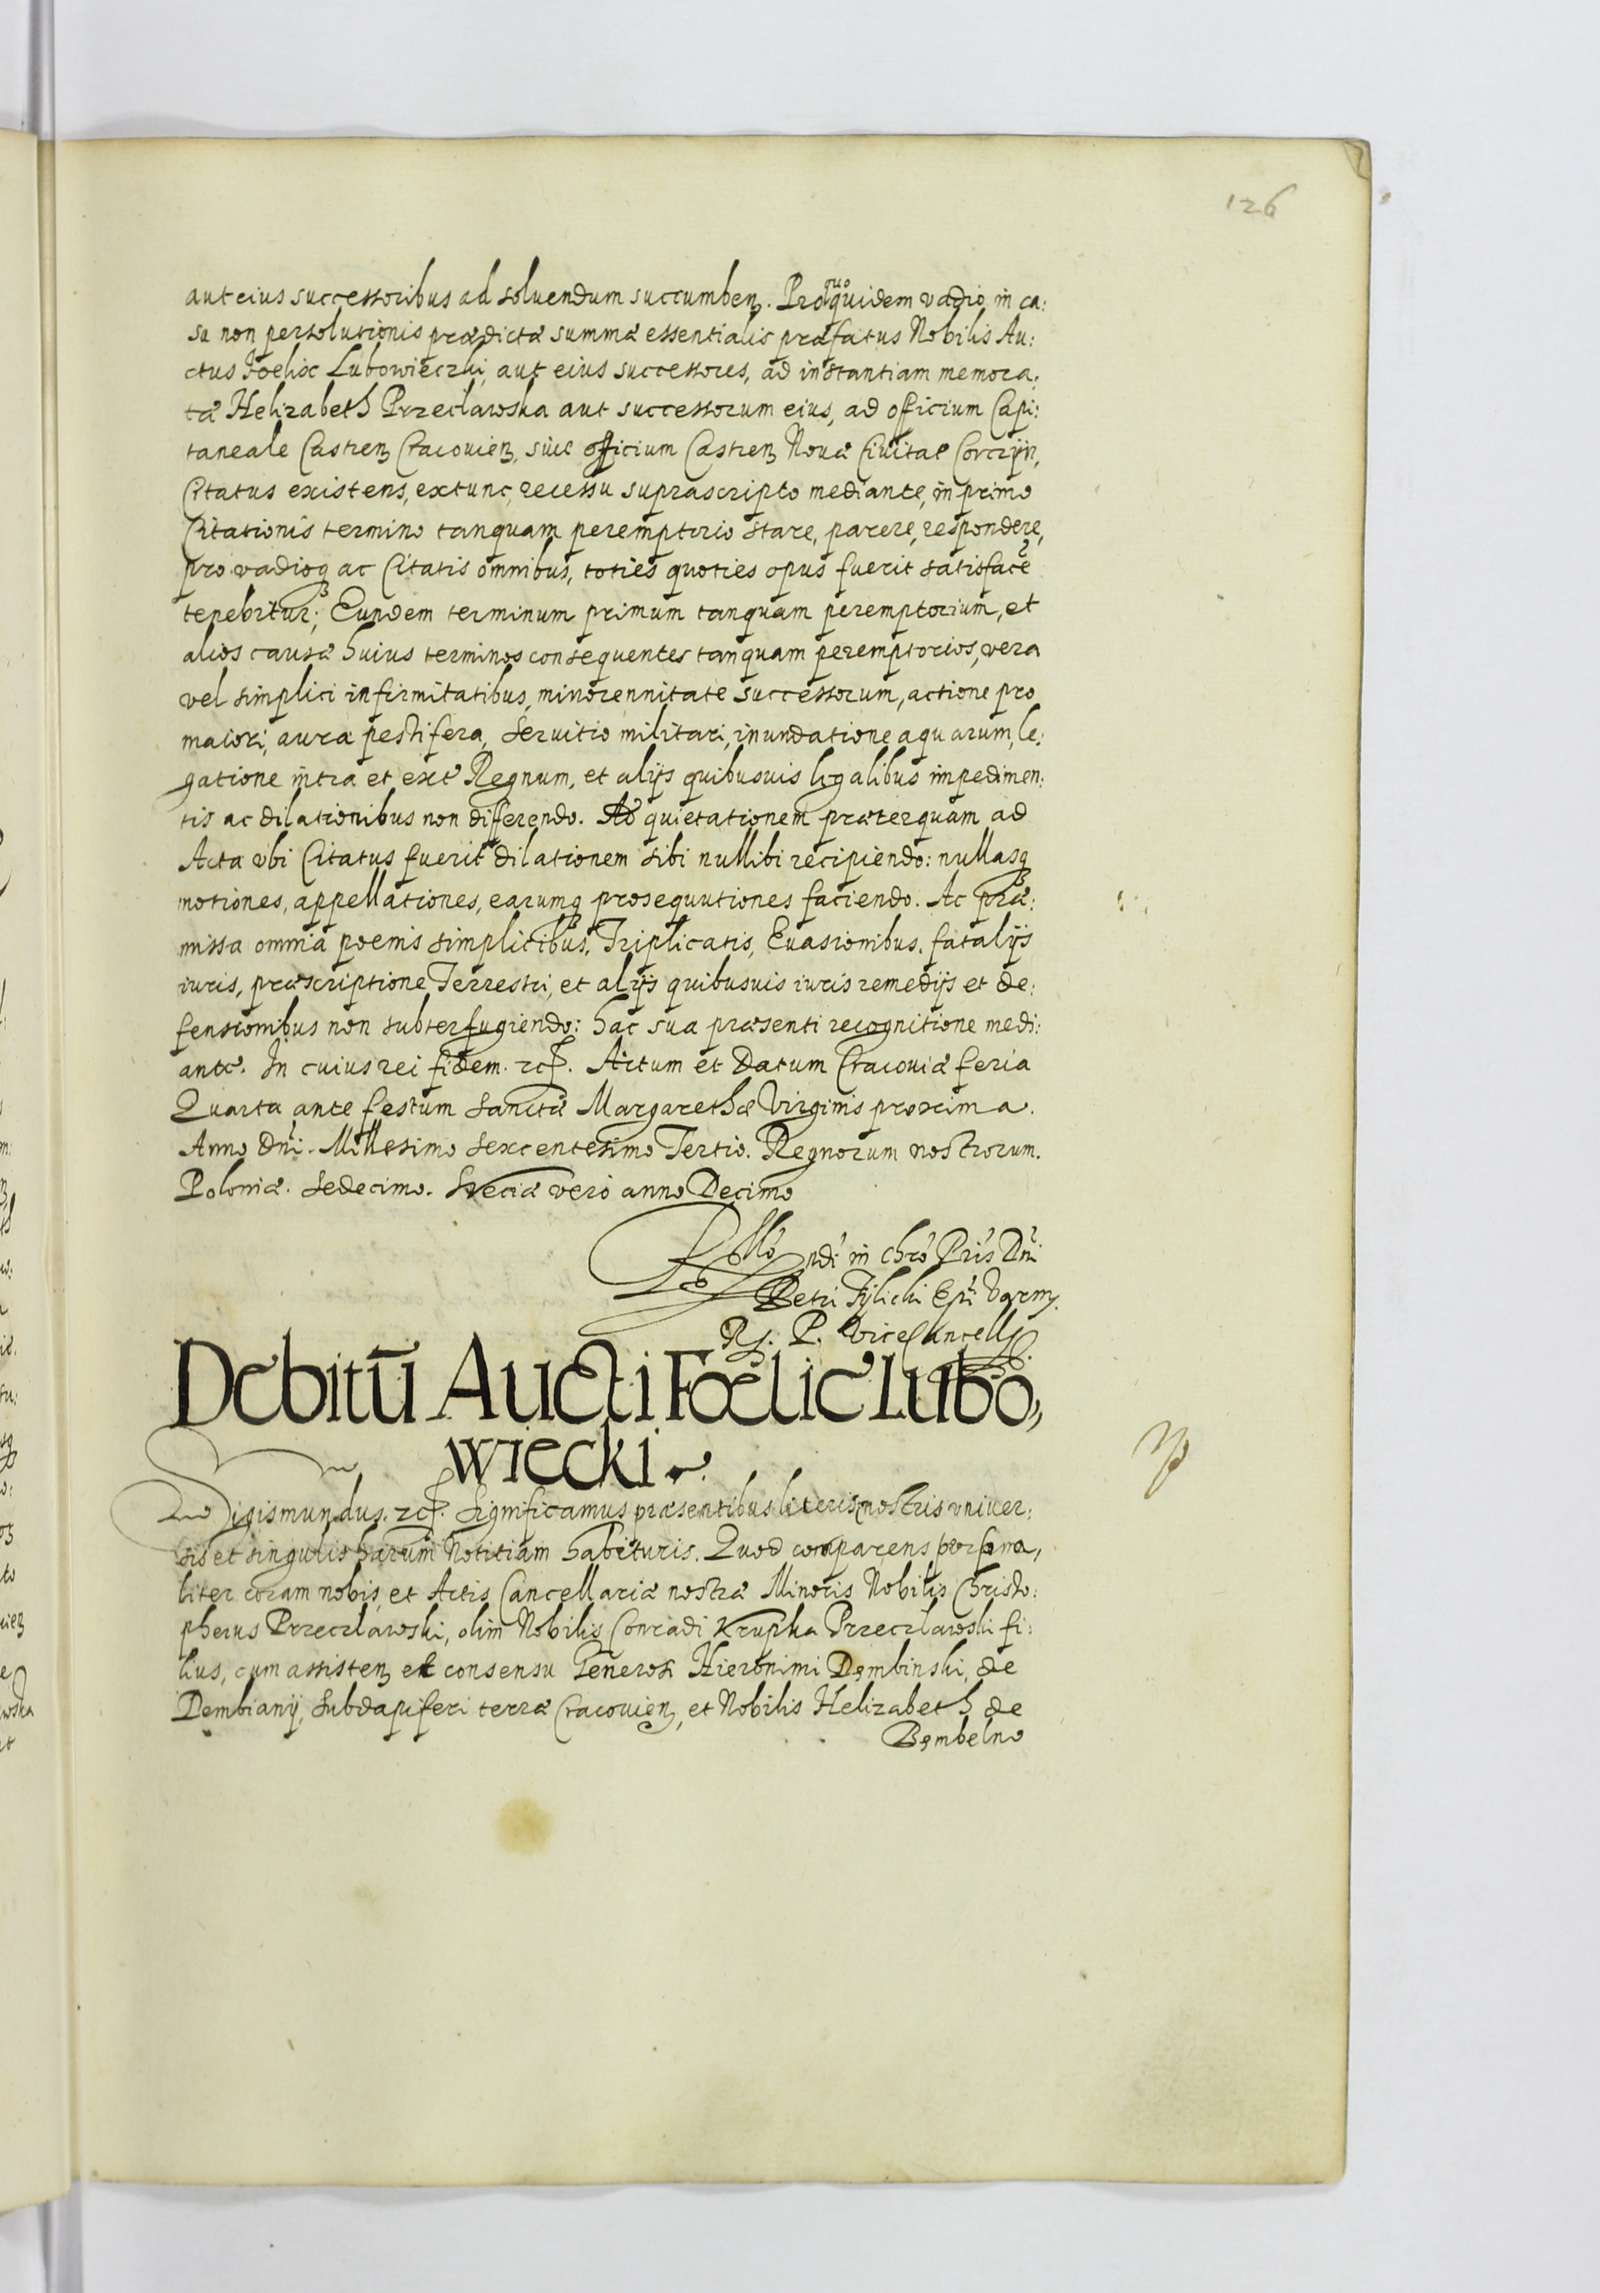 126
aut eius successoribus ad soluendum succumben. Pro quo quidem vadio, in ca:
su non persolutionis prædictæ summæ essentialis præfatus Nobilis Au:
ctus Foelix Lubowieczki, aut eius successores, ad instantiam memora:
tæ Helizabeth Przeclawska aut successorum eius, ad officium Capi:
taneale Castren Cracouien, siue officium Castren Nouæ Ciuitat Corczyn,
Citatus existens, extunc, recessu suprascripto mediante, in primo
Citationis termino tanquam peremptorio stare, parere, respondere,
pro vadioq ac Citatis omnibus, toties quoties opus fuerit satisface
tenebitur; Eundem terminum primum tanquam peremptorium, et
alios causæ huius terminos consequentes tanquam peremptorios, vera
vel simplici infirmitatibus, minorennitate successorum, actione pro
maiori, aura pestifera, Seruitio militari, inundatione aquarum, le:
gatione intra et ext Regnum, et alijs quibusuis legalibus impedimen:
tis ac dilationibus non differendo. Ad quietationem præterquam ad
Acta vbi Citatus fuerit dilationem sibi nullibi recipiendo: nullasq
motiones, appellationes, earumq prosequutiones faciendo. Ac præ:
missa omnia poenis simplicibus, Triplicatis, Euasionibus, fatalijs
iuris, præscriptione Terrestri, et alijs quibusuis iuris remedijs et de:
fensionibus non subterfugiendo: hac sua præsenti recognitione medi:
ante. In cuius rei fidem. Actum et Datum Cracouiæ feria
Quarta ante festum Sanctæ Margarethæ Virginis proxima.
Anno Dni. Millesimo Sexcentesimo Tertio. Regnorum nostrorum.
Poloniæ. Sedecimo. Sveciæ vero anno Decimo
Rello Rndi in Chro Pris Dni
Petri Tylicki Epi Varm.
R. P. ViceCancell
Debitu Aucti Fœlic Lubo,
wiecki
Sigismundus. Significamus præsentibus literis nostris vniuer:
sis et singulis harum Notitiam habituris. Quod comparens persona,
liter coram nobis, et Actis Cancellariæ nostræ Minoris Nobilis Christo:
pherus Przeczlawski, olim Nobilis Conradi Krupka Przeczlawski fi:
lius, cum assisten et consensu Generosi Hieronimi Dembinski, de
Dembiany, Subdapiferi terræ Cracouien, et Nobilis Helizabeth de
Bembelno